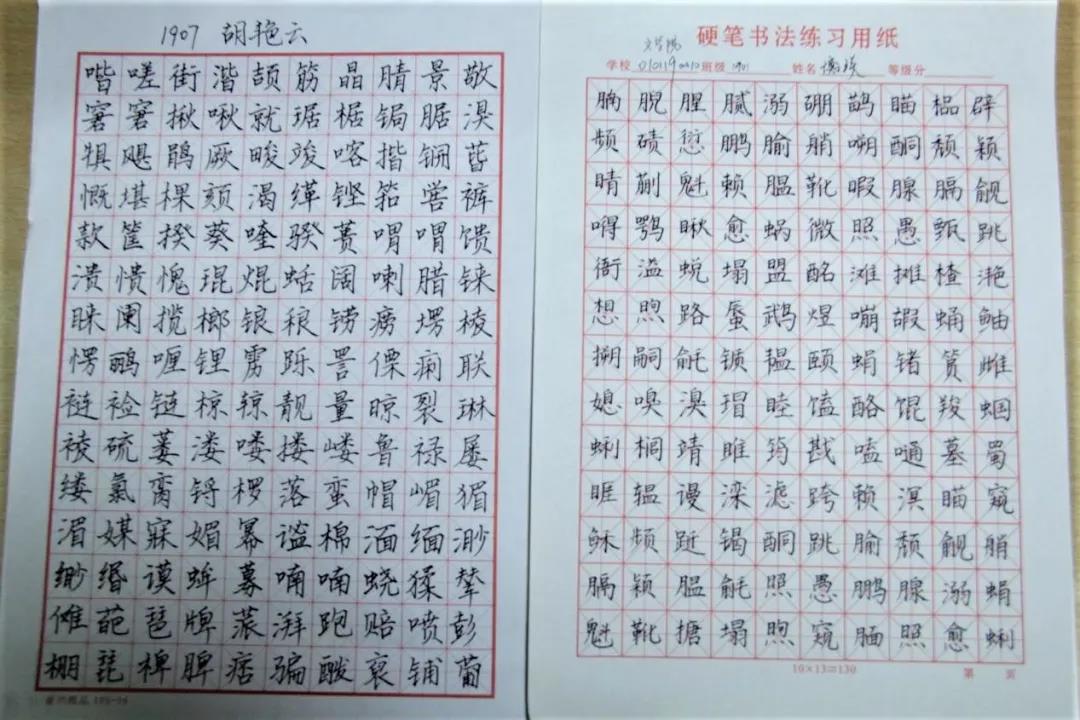 1907 胡艳云
喈嗟街湝颉筋晶腈景敬
窘窘揪啾就琚椐锔腒湨
犋飓鹃厥畯竣喀揩锎
慨堪棵颏渴缂铿筘喾裤
款筐揆葵喹骒蒉喟喟馈
溃愦愧琨焜蛞阔喇腊铼
睐阑揽榔锒稂铹痨塄棱
愣鹂喱锂雳跞詈傈痢联
裢裣链椋辌靓量晾裂琳
祾硫蒌溇喽搂嵝鲁禄屡
缕氯脔锊椤落蛮帽嵋猸
湄媒寐媚幂谧棉湎缅渺
缈缗谟蛑募喃喃蛲猱
傩葩琶牌蒎湃跑赔喷彭
棚琵椑脾痞骗酦裒铺葡
硬笔书法练习用纸
文学院
学校 班级 1901 姓名 等级分
腩睨腥腻溺硼鹋瞄榀辟
频碛愆鹏腧艄嘚酮颓颖
睛蒯魁赖腽靴暇腺膈觎
嘚鹗瞅愈蜗微照愚甄跳
衙溢蜕塌盟酩滩摊楂滟
想煦路蜃鹉煜嘣嘏蛹鲉
搠嗣毹锧韫颐蜎锗筼雎
媳嗅溴瑁睦馌酪馄羧蝈
蜊榈靖雎筠戡嗑嗵墓蜀
睚辒谩滦滤跨赖溟瞄窥
稣频跹锡酮跳腧颓觎艄
膈颖腽毹照愚鹏腺溺蜎
魁靴搪塌煦窥腼照愈蜊
10×13=130
第 页